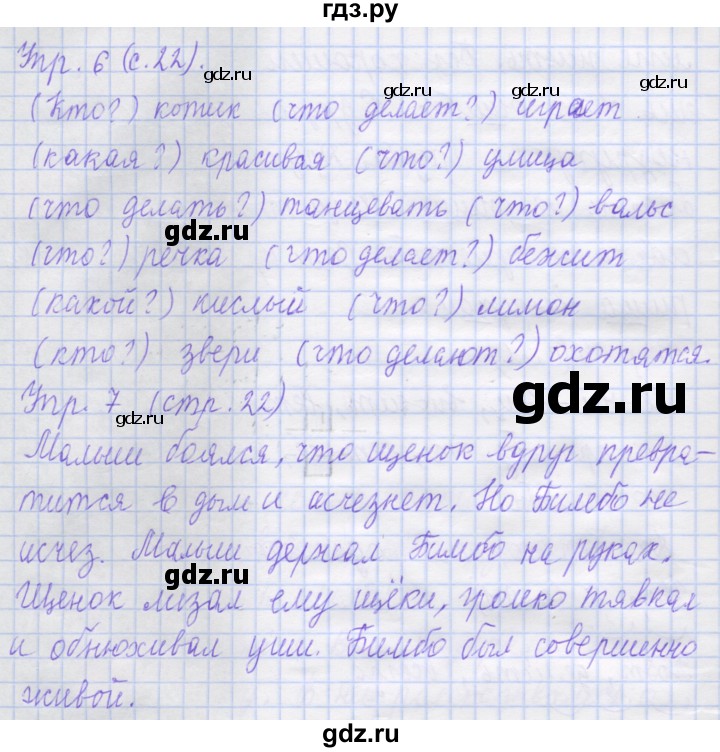 гдз.ру
Упр. 6 (с. 22).
gdz.ru
gdz.ru
(Кто?) котик (что делает?) играет
(какая?) красивая (что?) улица
(что делать?) танцевать (что?) вальс
gdz.ru
(что?) речка (что делает?) бежит
(какой?) кислый (что?) лимон
(кто?) звери (что делают?) охотятся.
gdz.ru
Упр. 7 (стр. 22)
Малыш боялся, что щенок вдруг превра-
тится в дым и исчезнет. Но Бимбо не
исчез. Малыш держал Бимбо на руках.
gdz.ru
gdz.ru
Щенок лизал ему щёки, громко тявкал
и обнюхивал уши. Бимбо был совершенно
живой.
gdz.ru
gdz.ru